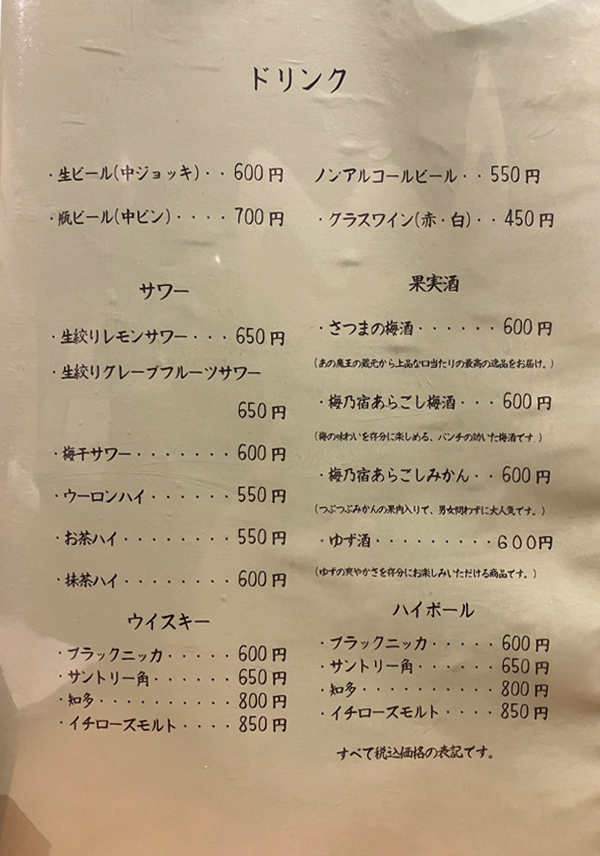 ドリンク
・生ビール(中ジョッキ)・・600円
・瓶ビール(中ビン)・・・・700円
ノンアルコールビール・・550円
・グラスワイン(赤・白)・・450円
サワー
・生絞りレモンサワー・・・650円
・生絞りグレープフルーツサワー
650円
・梅干サワー・・・・・・・600円
・ウーロンハイ・・・・・・550円
・お茶ハイ・・・・・・・・550円
・抹茶ハイ・・・・・・・・600円
果実酒
・さつまの梅酒・・・・・・600円
(あの魔王の蔵元から上品な口当たりの最高の逸品をお届け。)
・梅乃宿あらごし梅酒・・・600円
(梅の味わいを存分に楽しめる、パンチの効いた梅酒です.)
・梅乃宿あらごしみかん・・600円
(つぶつぶみかんの果肉入りで、男女問わずに大人気です。)
・ゆず酒・・・・・・・・・600円
(ゆずの爽やかさを存分にお楽しみいただける商品です。)
ウイスキー
・ブラックニッカ・・・・・600円
・サントリー角・・・・・・650円
・知多・・・・・・・・・・800円
・イチローズモルト・・・・850円
ハイボール
・ブラックニッカ・・・・・600円
・サントリー角・・・・・・650円
・知多・・・・・・・・・・800円
・イチローズモルト・・・・850円
すべて税込価格の表記です。